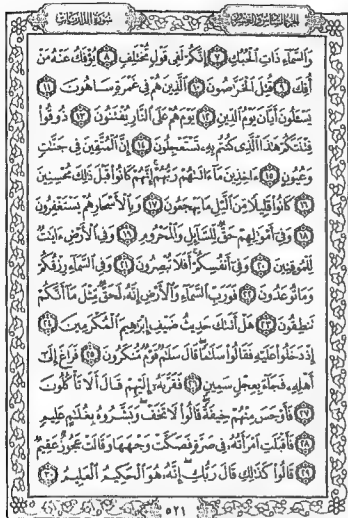 الجزء السادس والعشرون سورة الذاريات
وَالسَّمَاءِ ذَاتِ الْحُبُكِ ٧ إِنَّكُمْ لَفِي قَوْلٍ مُّخْتَلِفٍ ٨ يُؤْفَكُ عَنْهُ مَنْ
أُفِكَ ٩ قُتِلَ الْخَرَّاصُونَ ١٠ الَّذِينَ هُمْ فِي غَمْرَةٍ سَاهُونَ ١١
يَسْـَٔلُونَ أَيَّانَ يَوْمُ الدِّينِ ١٢ يَوْمَ هُمْ عَلَى النَّارِ يُفْتَنُونَ ١٣ ذُوقُوا
فِتْنَتَكُمْ هَٰذَا الَّذِي كُنتُم بِهِ تَسْتَعْجِلُونَ ١٤ إِنَّ الْمُتَّقِينَ فِي جَنَّٰتٍ
وَعُيُونٍ ١٥ ءَاخِذِينَ مَا ءَاتَىٰهُمْ رَبُّهُمْ إِنَّهُمْ كَانُوا قَبْلَ ذَٰلِكَ مُحْسِنِينَ
١٦ كَانُوا قَلِيلًا مِّنَ الَّيْلِ مَا يَهْجَعُونَ ١٧ وَبِالْأَسْحَارِ هُمْ يَسْتَغْفِرُونَ
١٨ وَفِي أَمْوَٰلِهِمْ حَقٌّ لِّلسَّائِلِ وَالْمَحْرُومِ ١٩ وَفِي الْأَرْضِ ءَايَٰتٌ
لِّلْمُوقِنِينَ ٢٠ وَفِي أَنفُسِكُمْ أَفَلَا تُبْصِرُونَ ٢١ وَفِي السَّمَاءِ رِزْقُكُمْ
وَمَا تُوعَدُونَ ٢٢ فَوَرَبِّ السَّمَاءِ وَالْأَرْضِ إِنَّهُ لَحَقٌّ مِّثْلَ مَا أَنَّكُمْ
تَنطِقُونَ ٢٣ هَلْ أَتَىٰكَ حَدِيثُ ضَيْفِ إِبْرَٰهِيمَ الْمُكْرَمِينَ ٢٤
إِذْ دَخَلُوا عَلَيْهِ فَقَالُوا سَلَٰمًا قَالَ سَلَٰمٌ قَوْمٌ مُّنكَرُونَ ٢٥ فَرَاغَ إِلَىٰ
أَهْلِهِ فَجَاءَ بِعِجْلٍ سَمِينٍ ٢٦ فَقَرَّبَهُ إِلَيْهِمْ قَالَ أَلَا تَأْكُلُونَ
٢٧ فَأَوْجَسَ مِنْهُمْ خِيفَةً قَالُوا لَا تَخَفْ وَبَشَّرُوهُ بِغُلَٰمٍ عَلِيمٍ
٢٨ فَأَقْبَلَتِ امْرَأَتُهُ فِي صَرَّةٍ فَصَكَّتْ وَجْهَهَا وَقَالَتْ عَجُوزٌ عَقِيمٌ
٢٩ قَالُوا كَذَٰلِكِ قَالَ رَبُّكِ إِنَّهُ هُوَ الْحَكِيمُ الْعَلِيمُ ٣٠
٥٢١